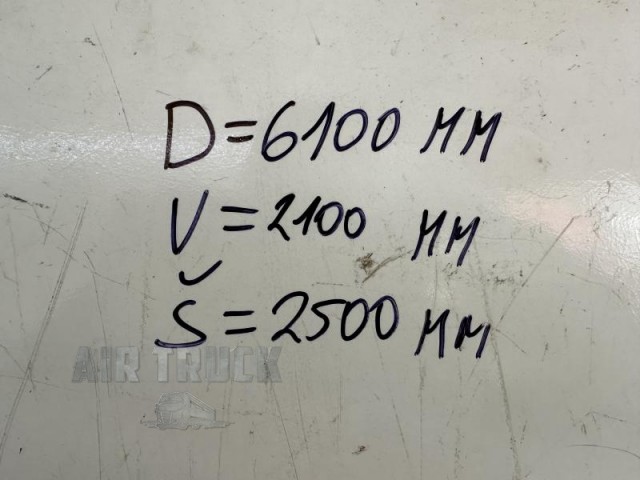 D=6100 MM
V=2100 MM
Š=2500 MM
AIR TRUCK